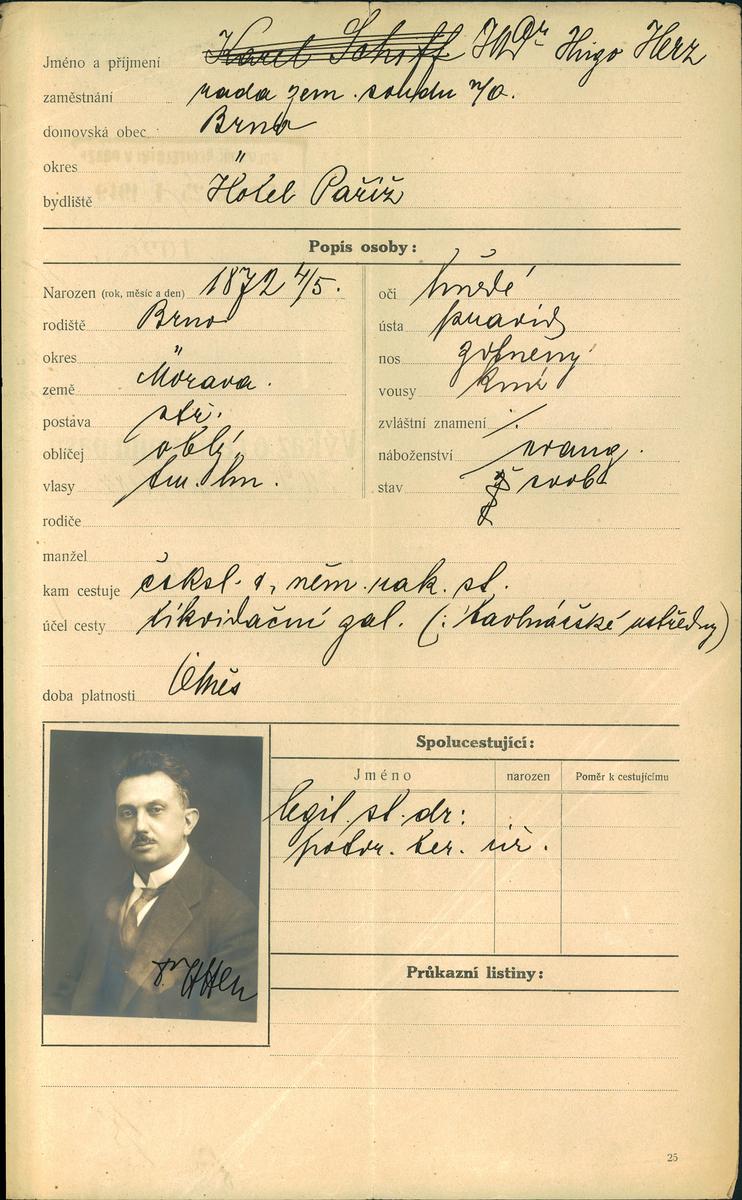 Jméno a příjmení Karel Schoff JUDr Hugo Herz
zaměstnání rada zem. soudu v/o.
domovská obec Brno
okres "
bydliště Hôtel Paříž
Popis osoby:
Narozen (rok, měsíc a den) 1872 4/5.
rodiště Brno
okres "
země Morava.
postava stř.
obličej oblý
vlasy tm. hn.
rodiče
manžel
oči hnědé
ústa pravid
nos
vousy knír
zvláštní znamení ./.
náboženství evang.
stav svob.
kam cestuje čsksl. r, něm. rak. st.
účel cesty likvidační zál. (: ústředny)
doba platnosti
Spolucestující:
Jméno narozen Poměr k cestujícímu
legit. st. dr:
potvr. ber. úř.
Průkazní listiny:
25